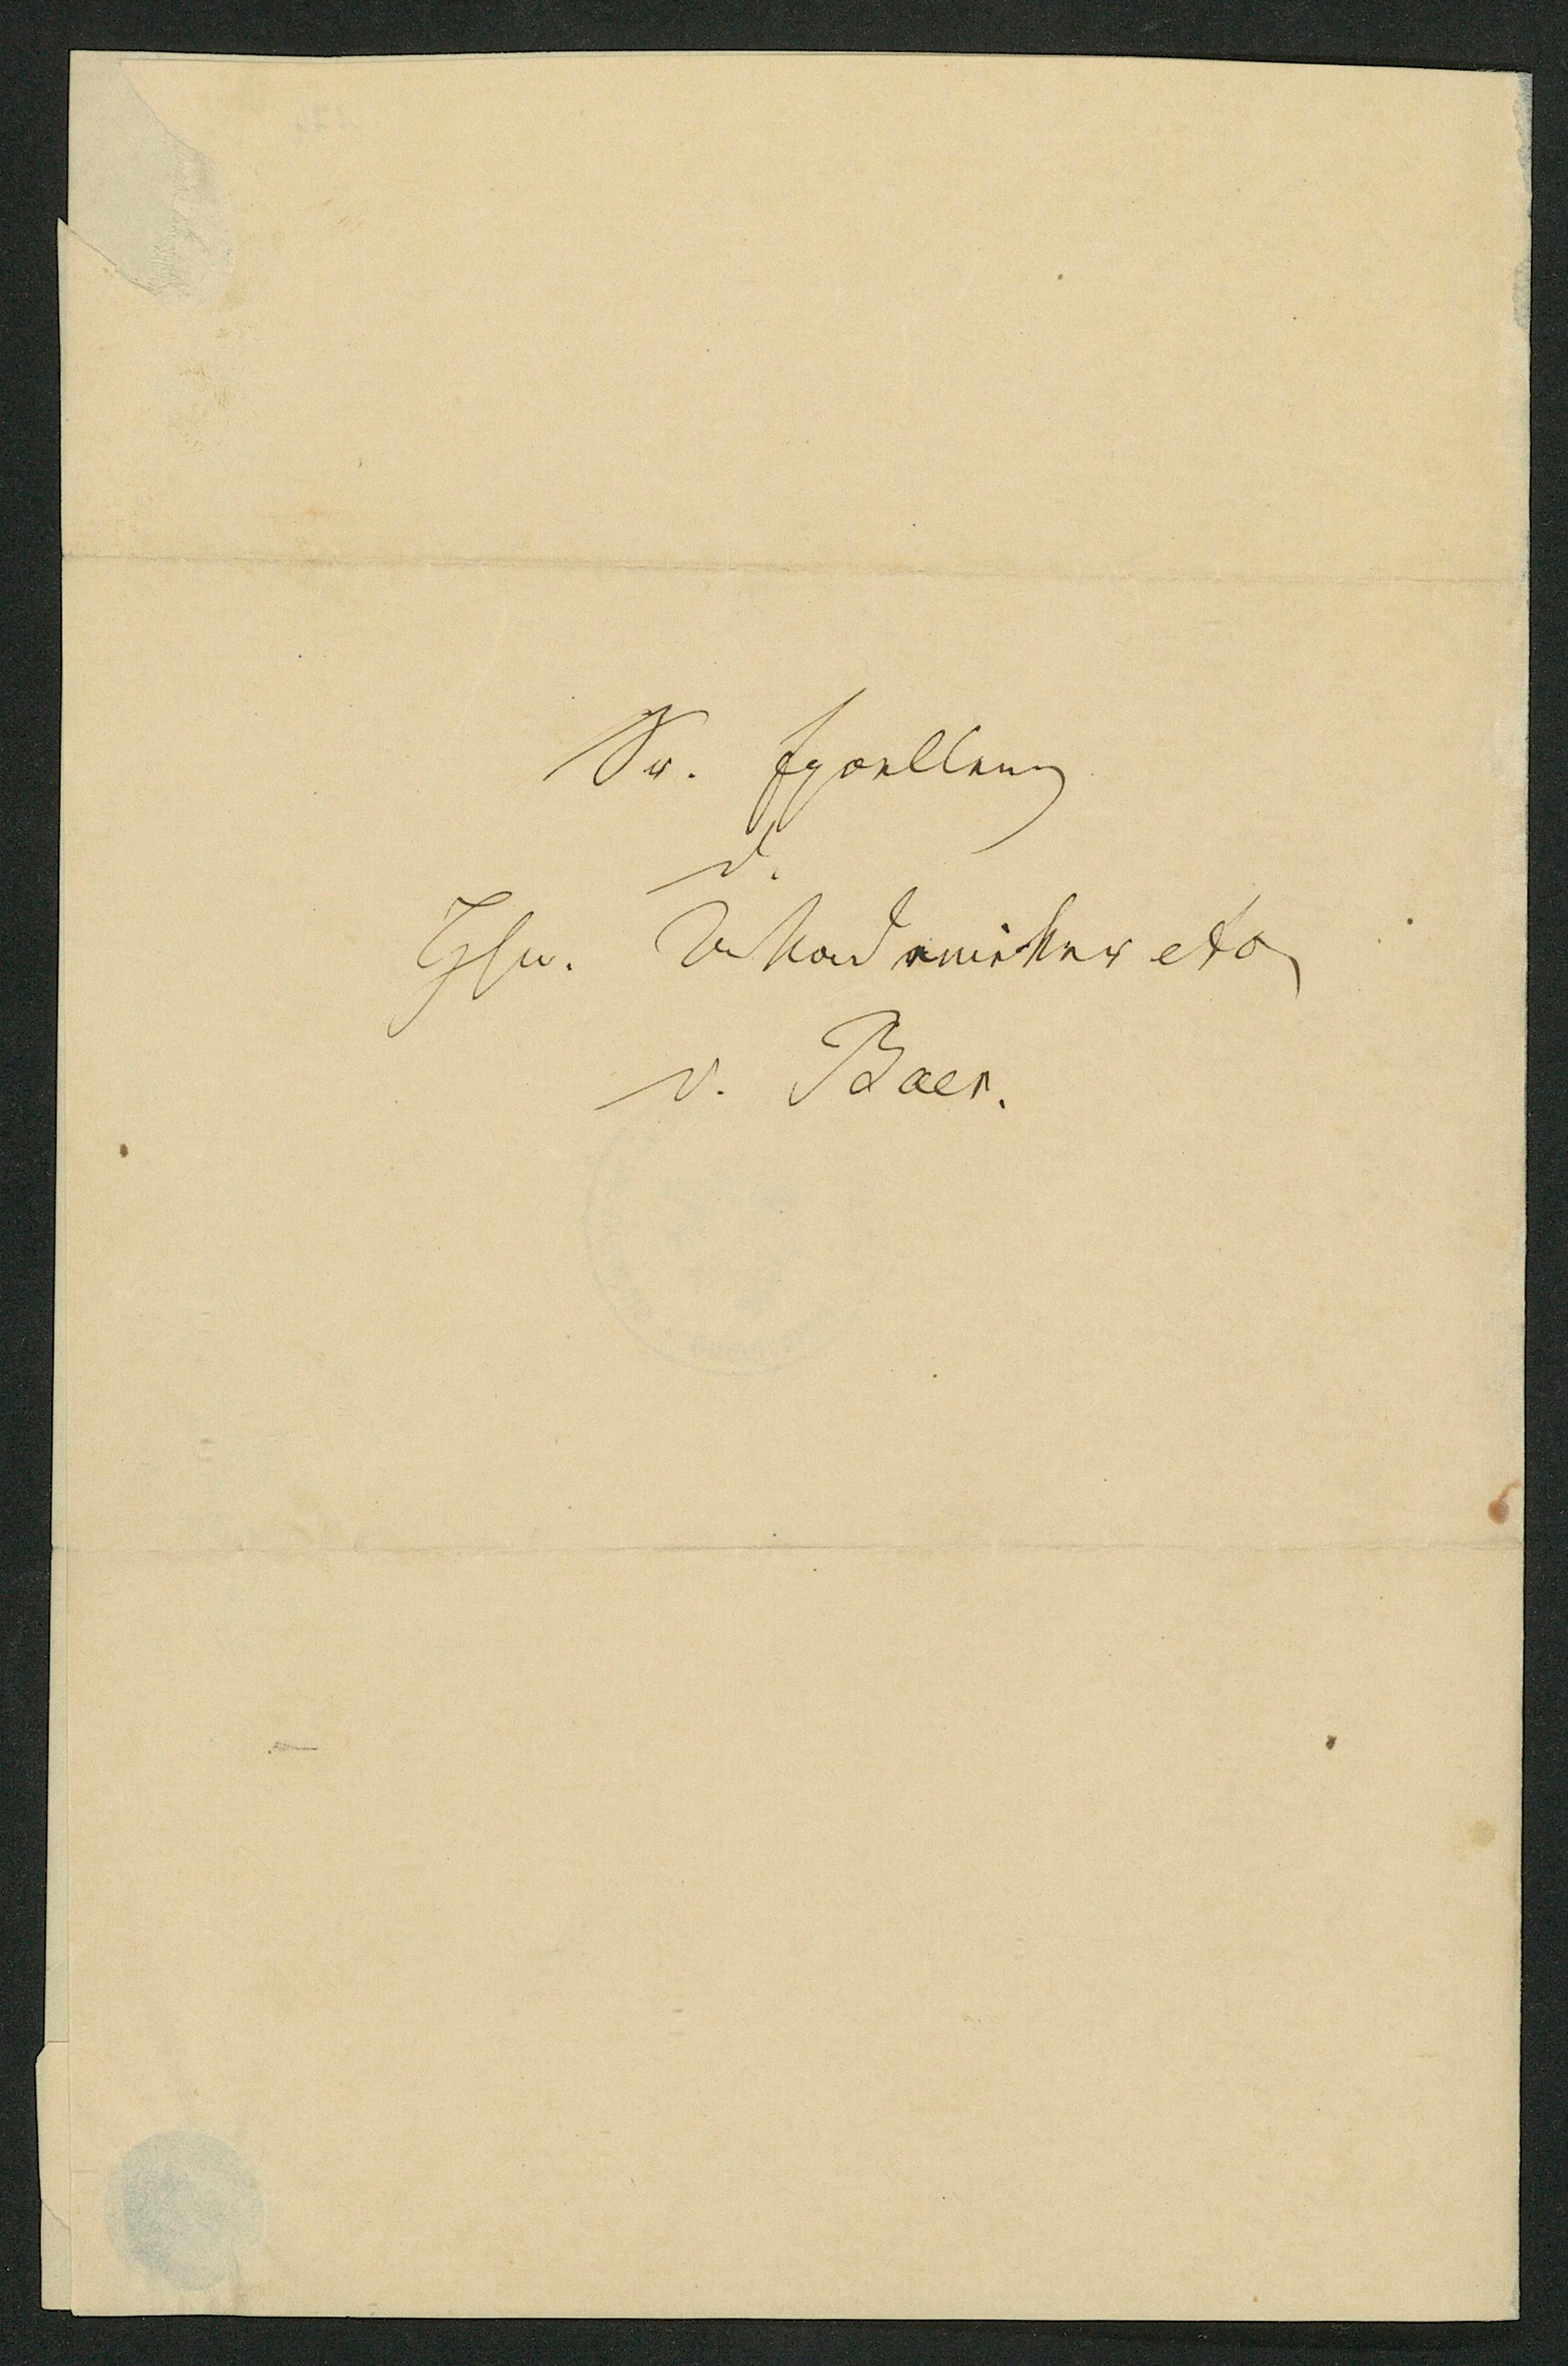 Sr. Excellenz
d.
Hrn. Akademiker etc
v. Baer.